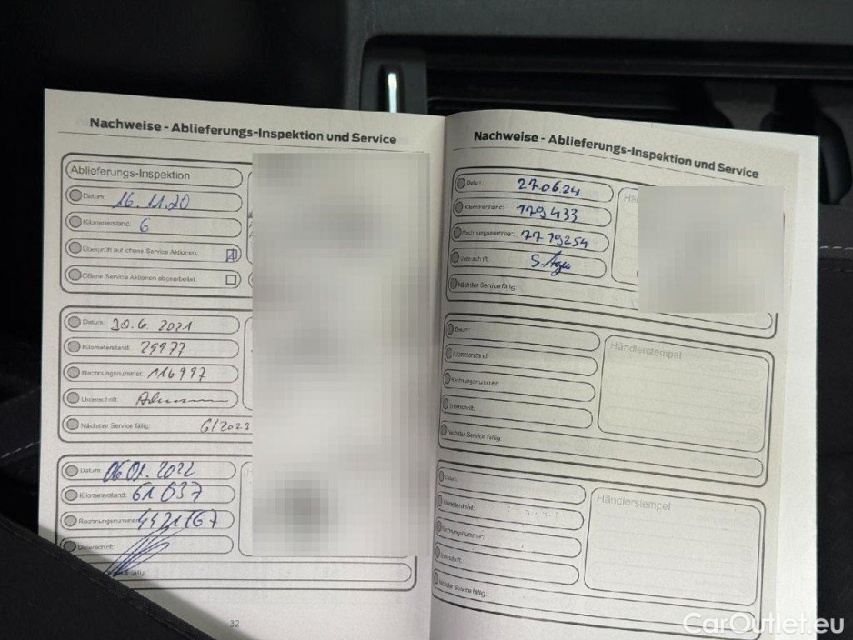 Nachweise - Ablieferungs-Inspektion und Service
Ablieferungs-Inspektion
Datum: 16.11.20
Kilometerstand: 6
Überprüft auf offene Service Aktionen:
Offene Service Aktionen abgearbeitet:
Datum: 30.6.2021
Kilometerstand: 29977
Rechnungsnummer: 116997
Unterschrift:
Nächster Service fällig: 6/2023
Datum: 06.01.2022
Kilometerstand: 61 037
Rechnungsnummer: 4921167
Unterschrift:
32
Nachweise - Ablieferungs-Inspektion und Service
Datum: 27.06.24
Kilometerstand: 179433
Rechnungsnummer: 7779254
Unterschrift:
Nächster Service fällig:
Datum:
Händlerstempel
Kilometerstand:
Rechnungsnummer:
Unterschrift:
Nächster Service fällig:
Datum:
Händlerstempel
Kilometerstand:
Rechnungsnummer:
Unterschrift:
Nächster Service fällig:
CarOutlet.eu